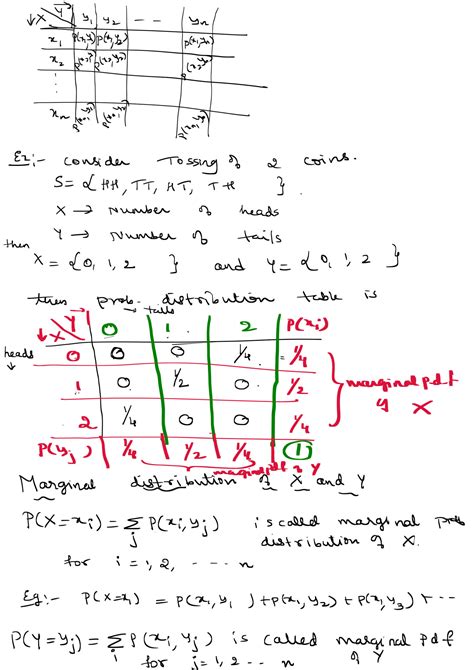 ↓X Y→ y₁ y₂ - - yₙ
x₁ P(x₁,y₁) P(x₁,y₂) P(x₁,yₙ)
x₂ P(x₂,y₁) P(x₂,y₂) P(x₂,yₙ)
⋮
xₙ P(xₙ,y₁) P(xₙ,y₂) P(xₙ,yₙ)
Ex:- Consider Tossing of 2 coins.
S = { HH, TT, HT, TH }
X → Number of heads
Y → Number of tails
then X = {0, 1, 2 } and Y = {0, 1, 2 }
then prob. distribution table is
→ tails
↓X Y→ 0 1 2 P(xᵢ)
heads ↓ 0 0 0 1/4 = 1/4
1 0 1/2 0 1/2
2 1/4 0 0 1/4
marginal pdf of X
P(yⱼ) 1/4 1/2 1/4 1
marginal pdf of Y
Marginal distribution of X and Y
P(X=xᵢ) = ∑ⱼ P(xᵢ, yⱼ) is called marginal prob
distribution of X.
for i = 1, 2, - - - - n
Eg:- P(X=x₁) = P(x₁, y₁) + P(x₁, y₂) + P(x₁, y₃) + - - -
P(Y=yⱼ) = ∑ᵢ P(xᵢ, yⱼ) is called marginal pdf
of Y
for j = 1, 2 - - - n